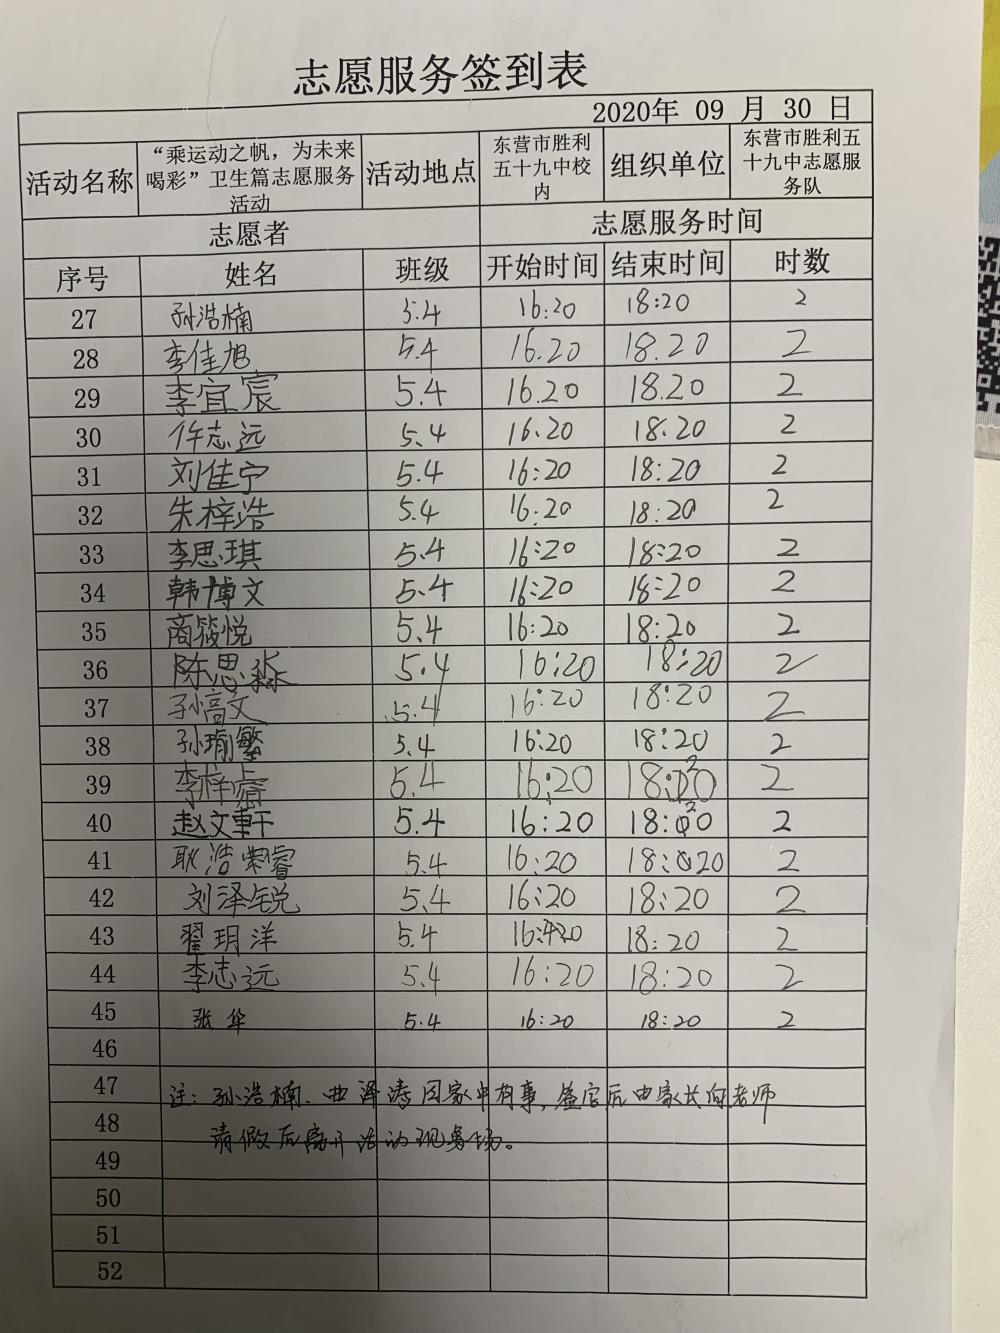 志愿服务签到表
2020年 09 月 30 日
活动名称 “乘运动之帆，为未来喝彩”卫生篇志愿服务活动 活动地点 东营市胜利五十九中校内 组织单位 东营市胜利五十九中志愿服务队
志愿者 志愿服务时间
序号 姓名 班级 开始时间 结束时间 时数
27 孙浩楠 5.4 16:20 18:20 2
28 李佳旭 5.4 16.20 18.20 2
29 李宜宸 5.4 16.20 18.20 2
30 许志远 5.4 16.20 18.20 2
31 刘佳宁 5.4 16:20 18:20 2
32 朱梓浩 5.4 16:20 18:20 2
33 李思琪 5.4 16:20 18:20 2
34 韩博文 5.4 16:20 18:20 2
35 商筱悦 5.4 16:20 18:20 2
36 陈思淼 5.4 16:20 18:20 2
37 孙 文 5.4 16:20 18:20 2
38 孙瑜繁 5.4 16:20 18:20 2
39 李梓睿 5.4 16:20 18:20 2
40 赵文軒 5.4 16:20 18:20 2
41 耿浩 睿 5.4 16:20 18:20 2
42 刘泽锐 5.4 16:20 18:20 2
43 翟玥洋 5.4 16:20 18:20 2
44 李志远 5.4 16:20 18:20 2
45 张华 5.4 16:20 18:20 2
46
47 注：孙浩楠、曲泽 因家中有事，签完后由家长向老师
48 请假后离开活动现场。
49
50
51
52